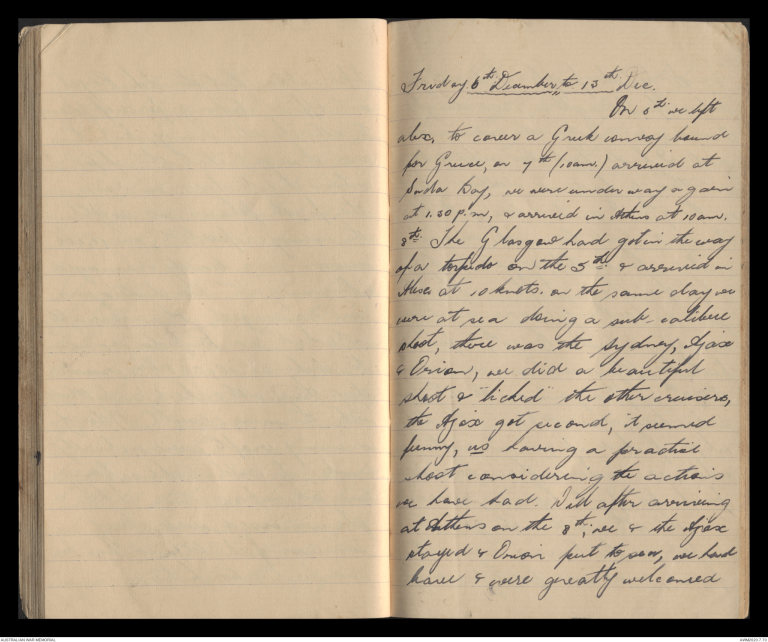 Friday 6th December, to 13th Dec.
On 6th we left
alex, to cover a Greek convoy bound
for Greece, on 7th (10am.) arrived at
Suda Bay, we were under way again
at 1.30 p.m, & arrived in Athens at 10am.
8th. The Glasgow had got in the way
of a torpedo on the 3rd & arrived in
Alex at 10 knots. on the same day we
were at sea doing a sub-calibere
shoot, there was the Sydney, Ajax
& Orion, we did a beautiful
shoot & "licked" the other cruisers,
the Ajax got second, it seemed
funny, us having a practise
shoot considering the actions
we have had. Well after arriving
at Athens on the 8th, we & the Ajax
stayed & Orion put to sea, we had
leave & were greatly welcomed
AUSTRALIAN WAR MEMORIAL